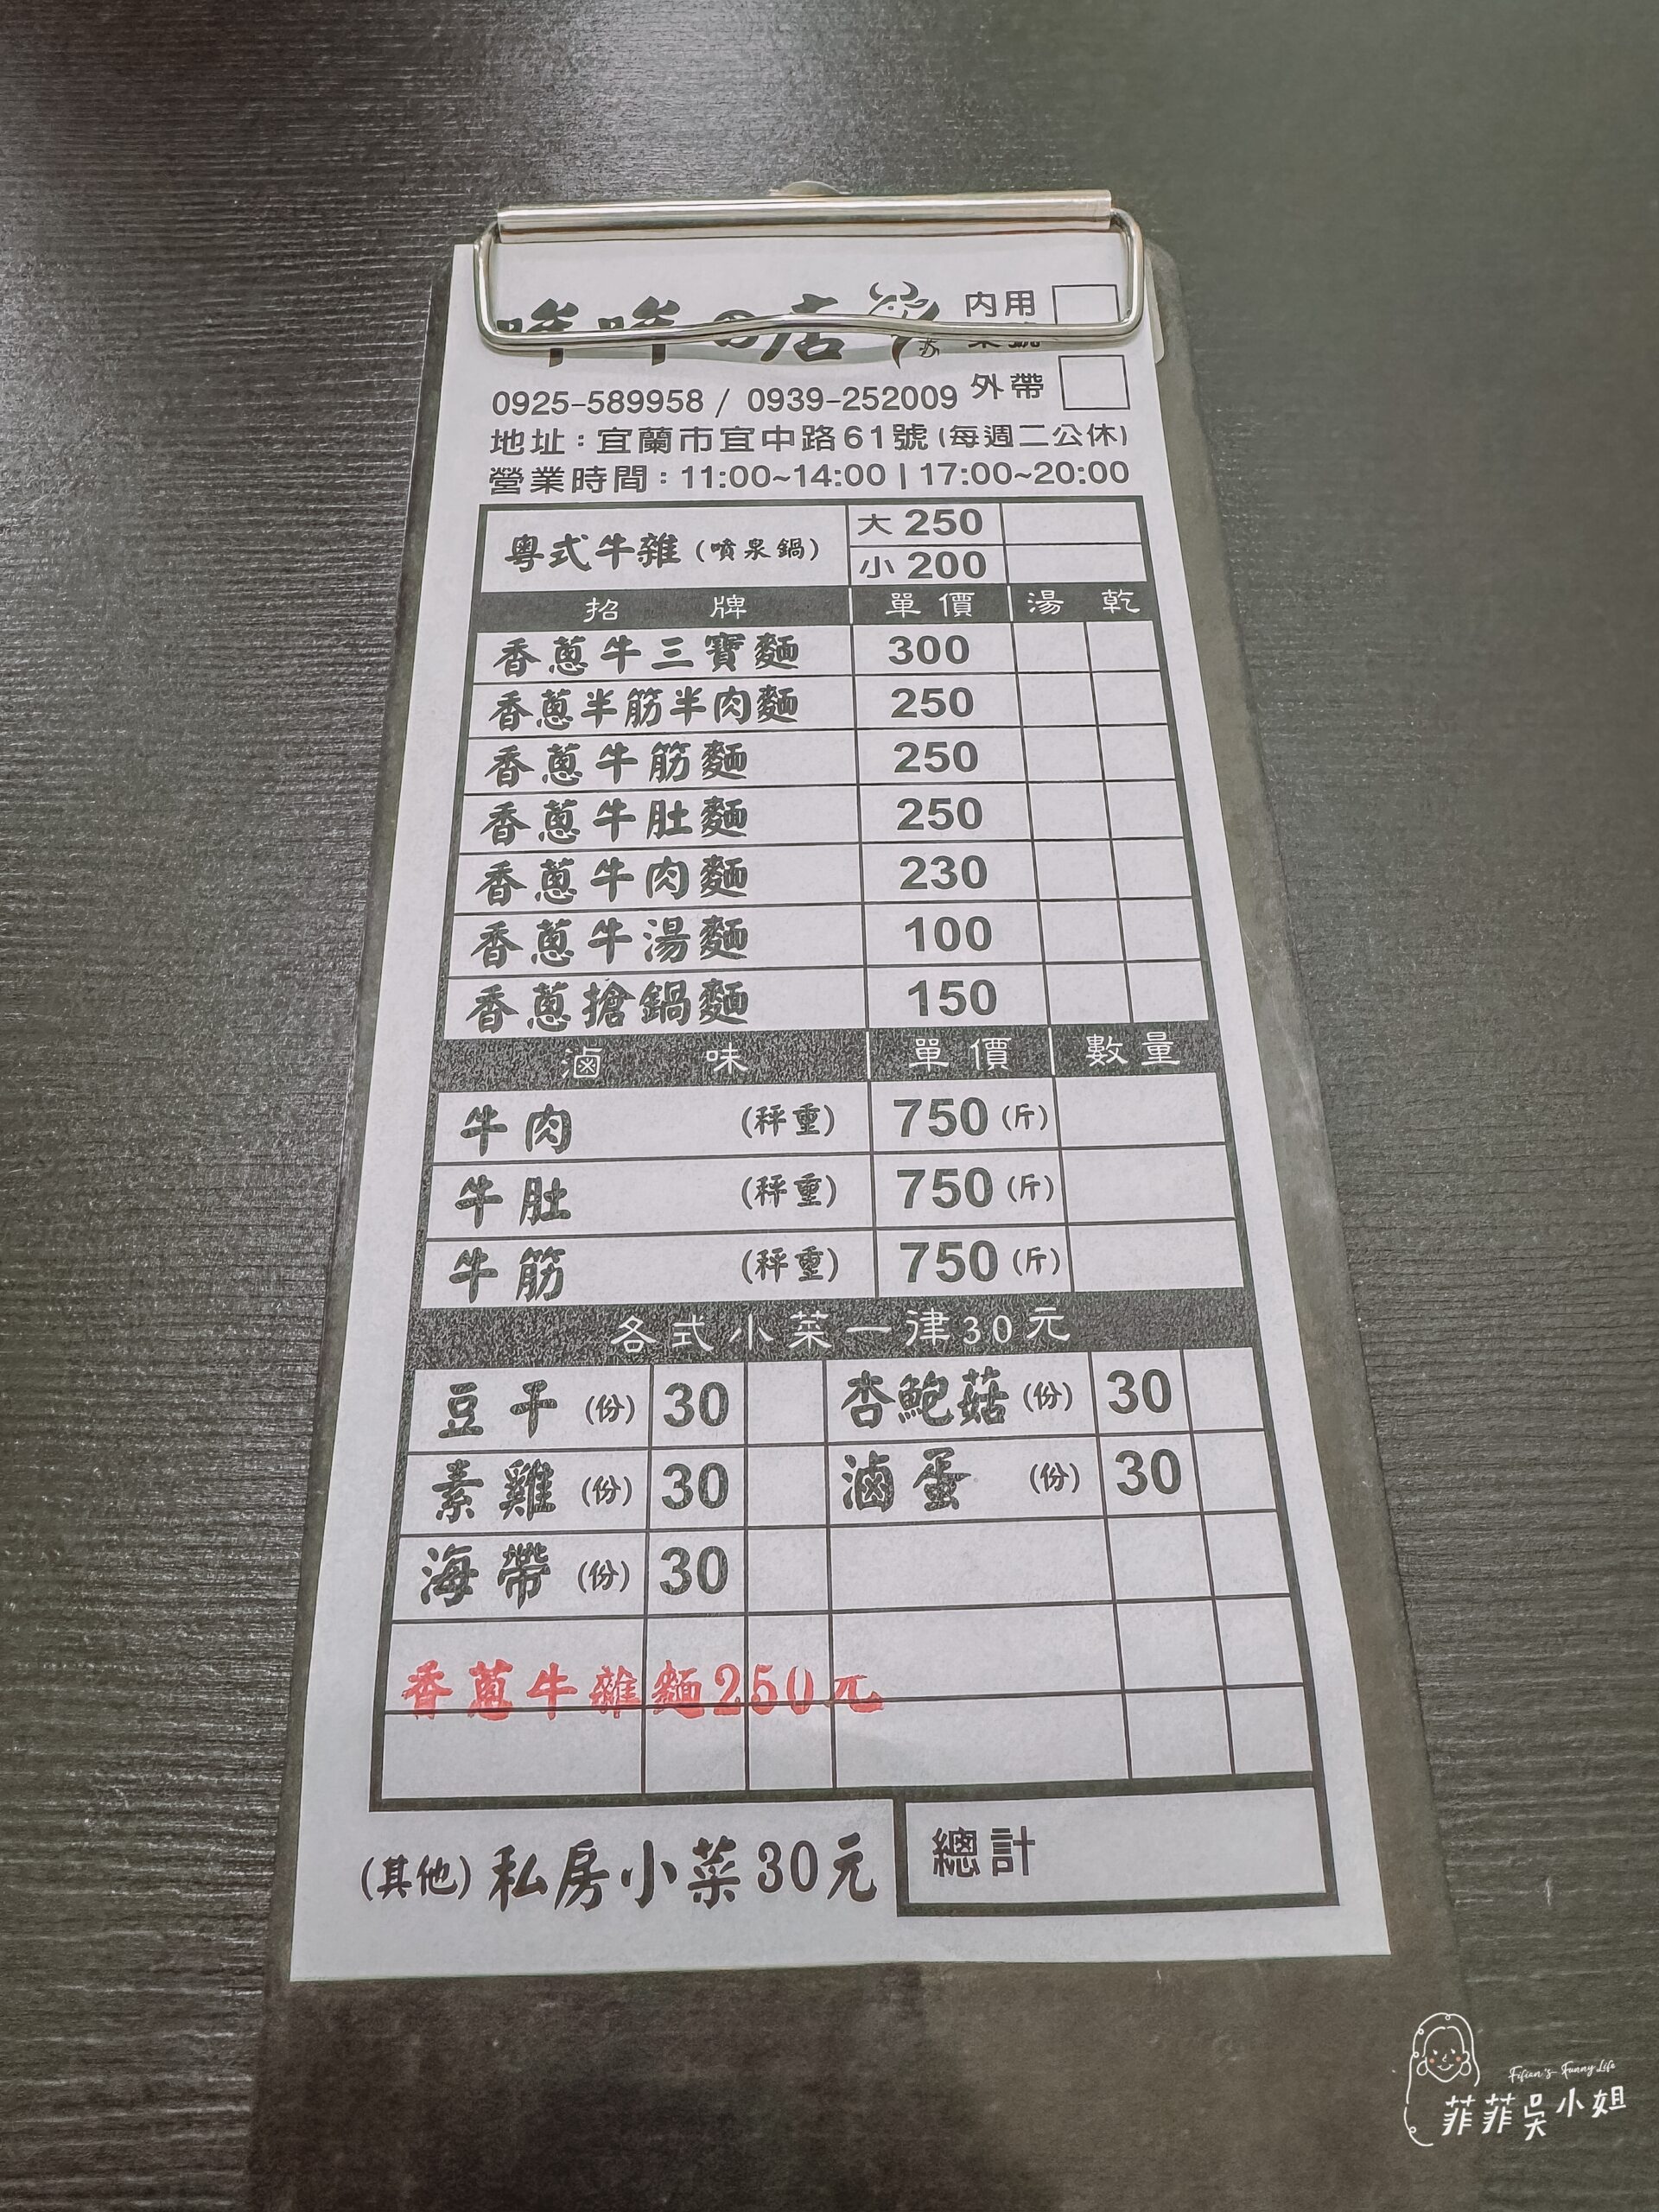 哞哞の店
內用
桌號
0925-589958 / 0939-252009 外帶
地址：宜蘭市宜中路61號(每週二公休)
營業時間：11:00~14:00 | 17:00~20:00
粵式牛雜(噴泉鍋) 大 250
小 200
招牌 單價 湯 乾
香蔥牛三寶麵 300
香蔥半筋半肉麵 250
香蔥牛筋麵 250
香蔥牛肚麵 250
香蔥牛肉麵 230
香蔥牛湯麵 100
香蔥搶鍋麵 150
滷味 單價 數量
牛肉 (秤重) 750(斤)
牛肚 (秤重) 750(斤)
牛筋 (秤重) 750(斤)
各式小菜一律30元
豆干(份) 30 杏鮑菇(份) 30
素雞(份) 30 滷蛋(份) 30
海帶(份) 30
香蔥牛雜麵250元
(其他)私房小菜30元 總計
Fifian's Funny Life
菲菲吳小姐